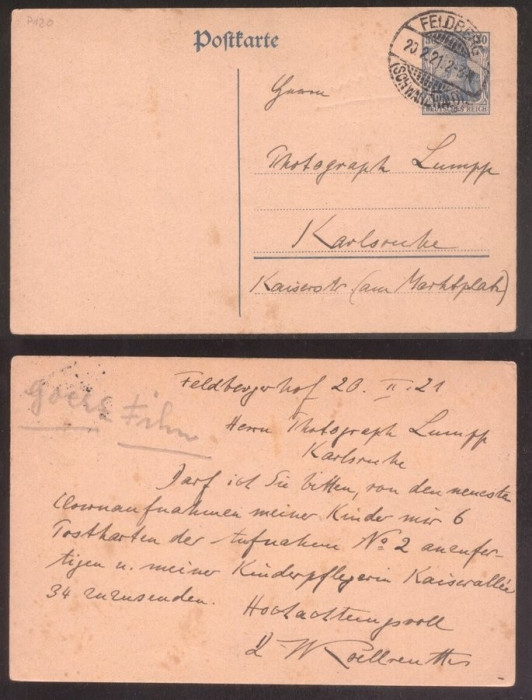 P120
Postkarte
FELDBERG
20.2.21.
(SCHWARZWALD)
DEUTSCHES REICH
Herrn
Photograph Lumpp
Karlsruhe
Kaiserstr (am Marktplatz)
Goerz Film
Feldbergerhof 20. II. 21
Herrn Photograph Lumpp
Karlsruhe
Darf ich Sie bitten, von den neuesten
aufnahmen meiner Kinder mir 6
Postkarten der Aufnahme No 2 anzufer-
tigen u. meiner Kinderpflegerin Kaiserallee
34 zuzusenden.
Hochachtungsvoll